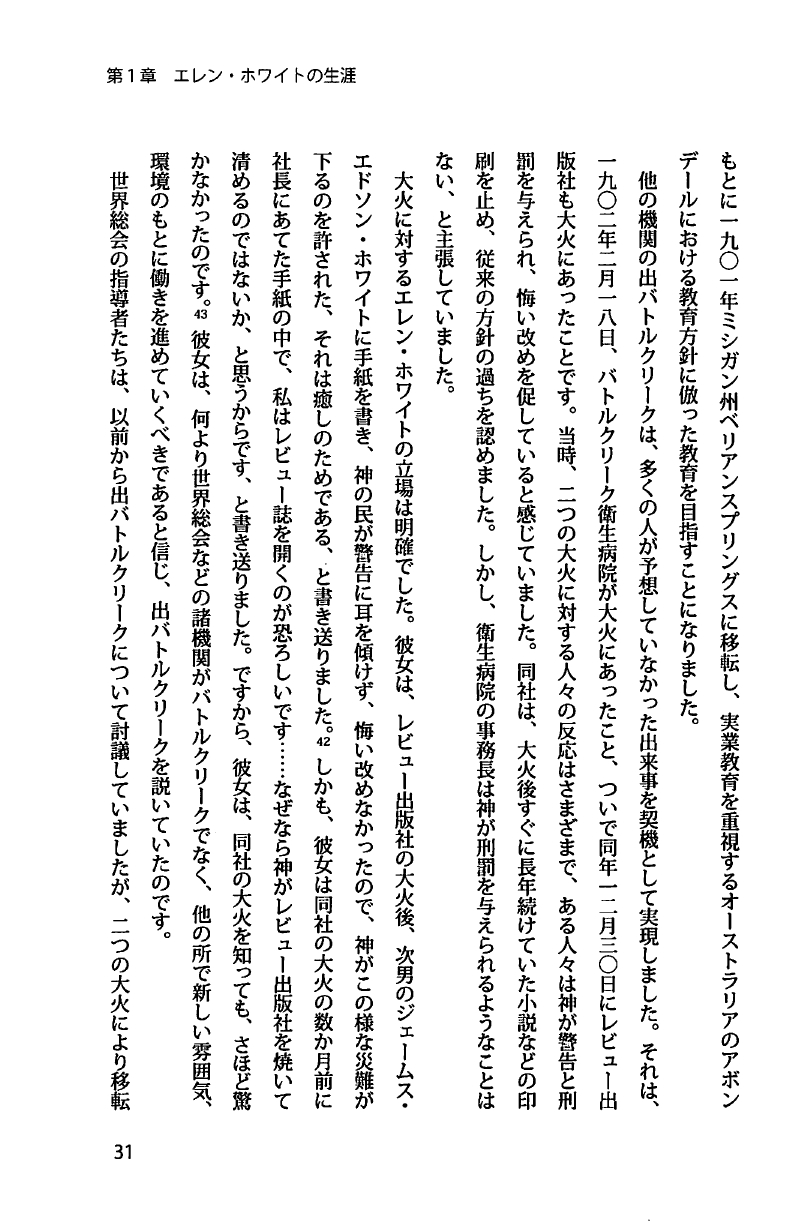 第1章　エレン・ホワイトの生涯
もとに一九〇一年ミシガン州ベリアンスプリングスに移転し、実業教育を重視するオーストラリアのアボン
デールにおける教育方針に倣った教育を目指すことになりました。
他の機関の出バトルクリークは、多くの人が予想していなかった出来事を契機として実現しました。それは、
一九〇二年二月一八日、バトルクリーク衛生病院が大火にあったこと、ついで同年一二月三〇日にレビュー出
版社も大火にあったことです。当時、二つの大火に対する人々の反応はさまざまで、ある人々は神が警告と刑
罰を与えられ、悔い改めを促していると感じていました。同社は、大火後すぐに長年続けていた小説などの印
刷を止め、従来の方針の過ちを認めました。しかし、衛生病院の事務長は神が刑罰を与えられるようなことは
ない、と主張していました。
大火に対するエレン・ホワイトの立場は明確でした。彼女は、レビュー出版社の大火後、次男のジェームス・
エドソン・ホワイトに手紙を書き、神の民が警告に耳を傾けず、悔い改めなかったので、神がこの様な災難が
下るのを許された、それは癒しのためである、と書き送りました。42 しかも、彼女は同社の大火の数か月前に
社長にあてた手紙の中で、私はレビュー誌を開くのが恐ろしいです……なぜなら神がレビュー出版社を焼いて
清めるのではないか、と思うからです、と書き送りました。ですから、彼女は、同社の大火を知っても、さほど驚
かなかったのです。43 彼女は、何より世界総会などの諸機関がバトルクリークでなく、他の所で新しい雰囲気、
環境のもとに働きを進めていくべきであると信じ、出バトルクリークを説いていたのです。
世界総会の指導者たちは、以前から出バトルクリークについて討議していましたが、二つの大火により移転
31